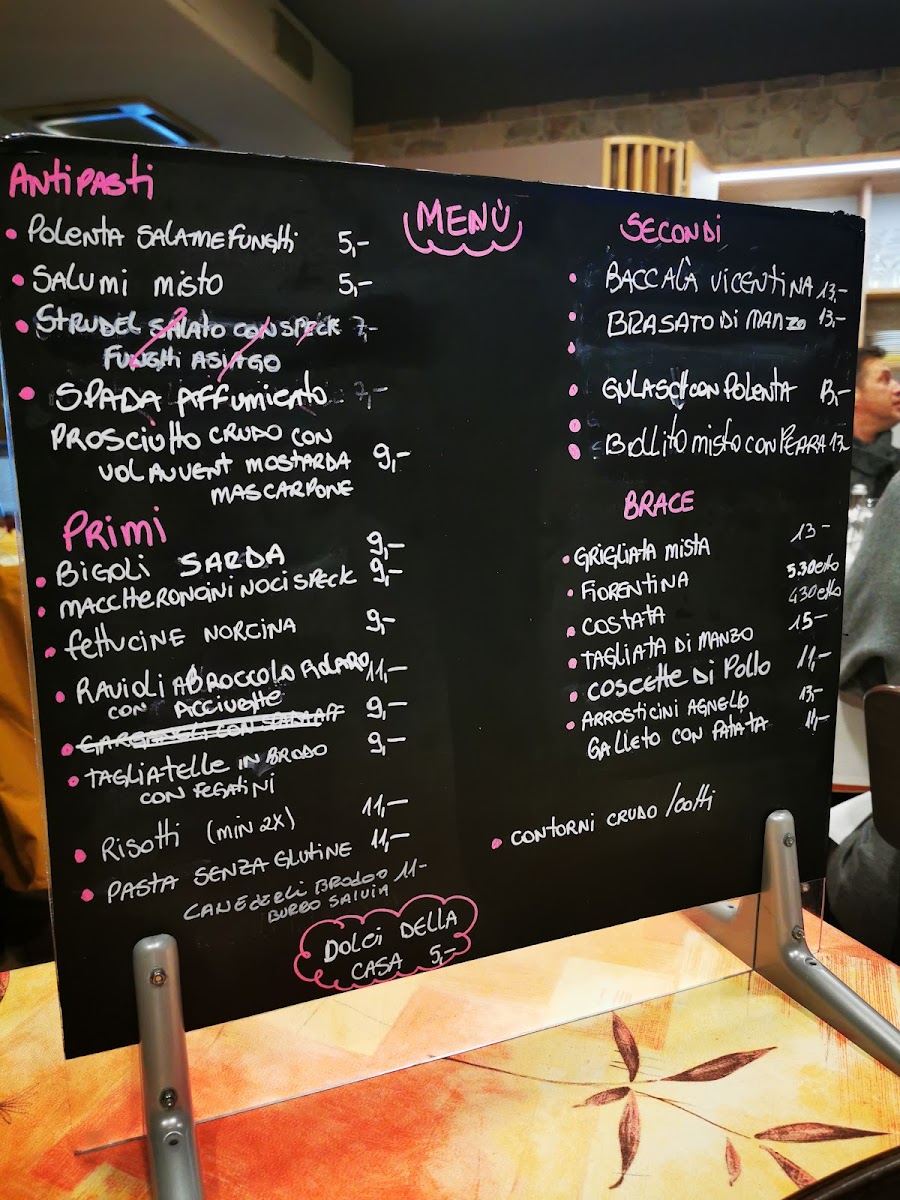 MENÙ
ANTIPASTI
• POLENTA SALAME FUNGHI 5,-
• SALUMI MISTO 5,-
• STRUDEL SALATO CON SPECK 7,-
FUNGHI ASIAGO
• SPADA AFFUMICATO 7,-
PROSCIUTTO CRUDO CON
VOLAUVENT MOSTARDA 9,-
MASCARPONE
PRIMI
• BIGOLI SARDA 9,-
• MACCHERONCINI NOCI SPECK 9,-
• FETTUCINE NORCINA 9,-
• RAVIOLI A BROCCOLO FIOLARO 11,-
CON ACCIUGHE
• 9,-
• TAGLIATELLE IN BRODO 9,-
CON FEGATINI
• RISOTTI (MIN 2X) 11,-
• PASTA SENZA GLUTINE 11,-
BRODO 11-
BURRO SALVIA
DOLCI DELLA
CASA 5,-
SECONDI
• BACCALÀ VICENTINA 13,-
• BRASATO DI MANZO 13,-
• GULASCH CON POLENTA 13,-
• BOLLITO MISTO CON PEARA 13
BRACE
• GRIGLIATA MISTA 13-
• FIORENTINA 5.30 etto
• COSTATA 4.30 etto
• TAGLIATA DI MANZO 15-
• COSCETTE DI POLLO 11,-
• ARROSTICINI AGNELLO 13,-
GALLETO CON PATATA 11,-
• CONTORNI CRUDO/COTTI